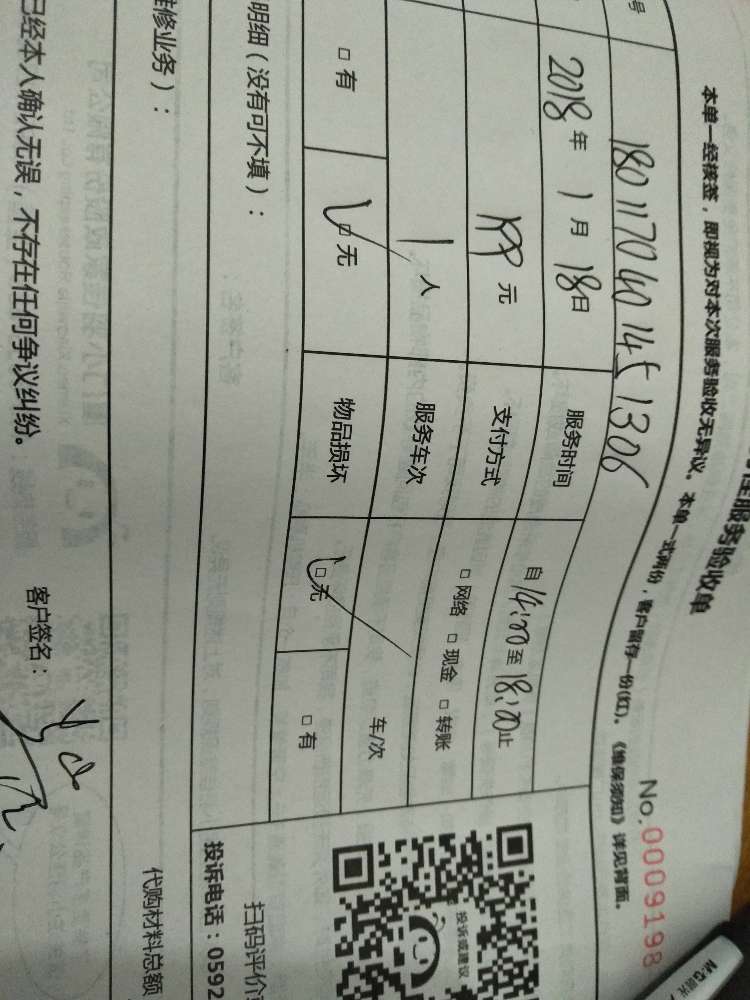 性服务验收单
No.0009198
本单一经核签，即视为对本次服务验收无异议。本单一式两份，客户留存一份(红)。《维保须知》详见背面。
号 1801170401451306
2018年1月18日 服务时间 自14:00至18:00止
元 支付方式 □网络 □现金 □转账
1人 服务车次 车/次
□有 □无 物品损坏 □无 □有
明细（没有可不填）：
扫码评价
投诉或建议
投诉电话：0592
维修业务）：
代购材料总额
已经本人确认无误，不存在任何争议纠纷。 客户签名：
M&G晨光